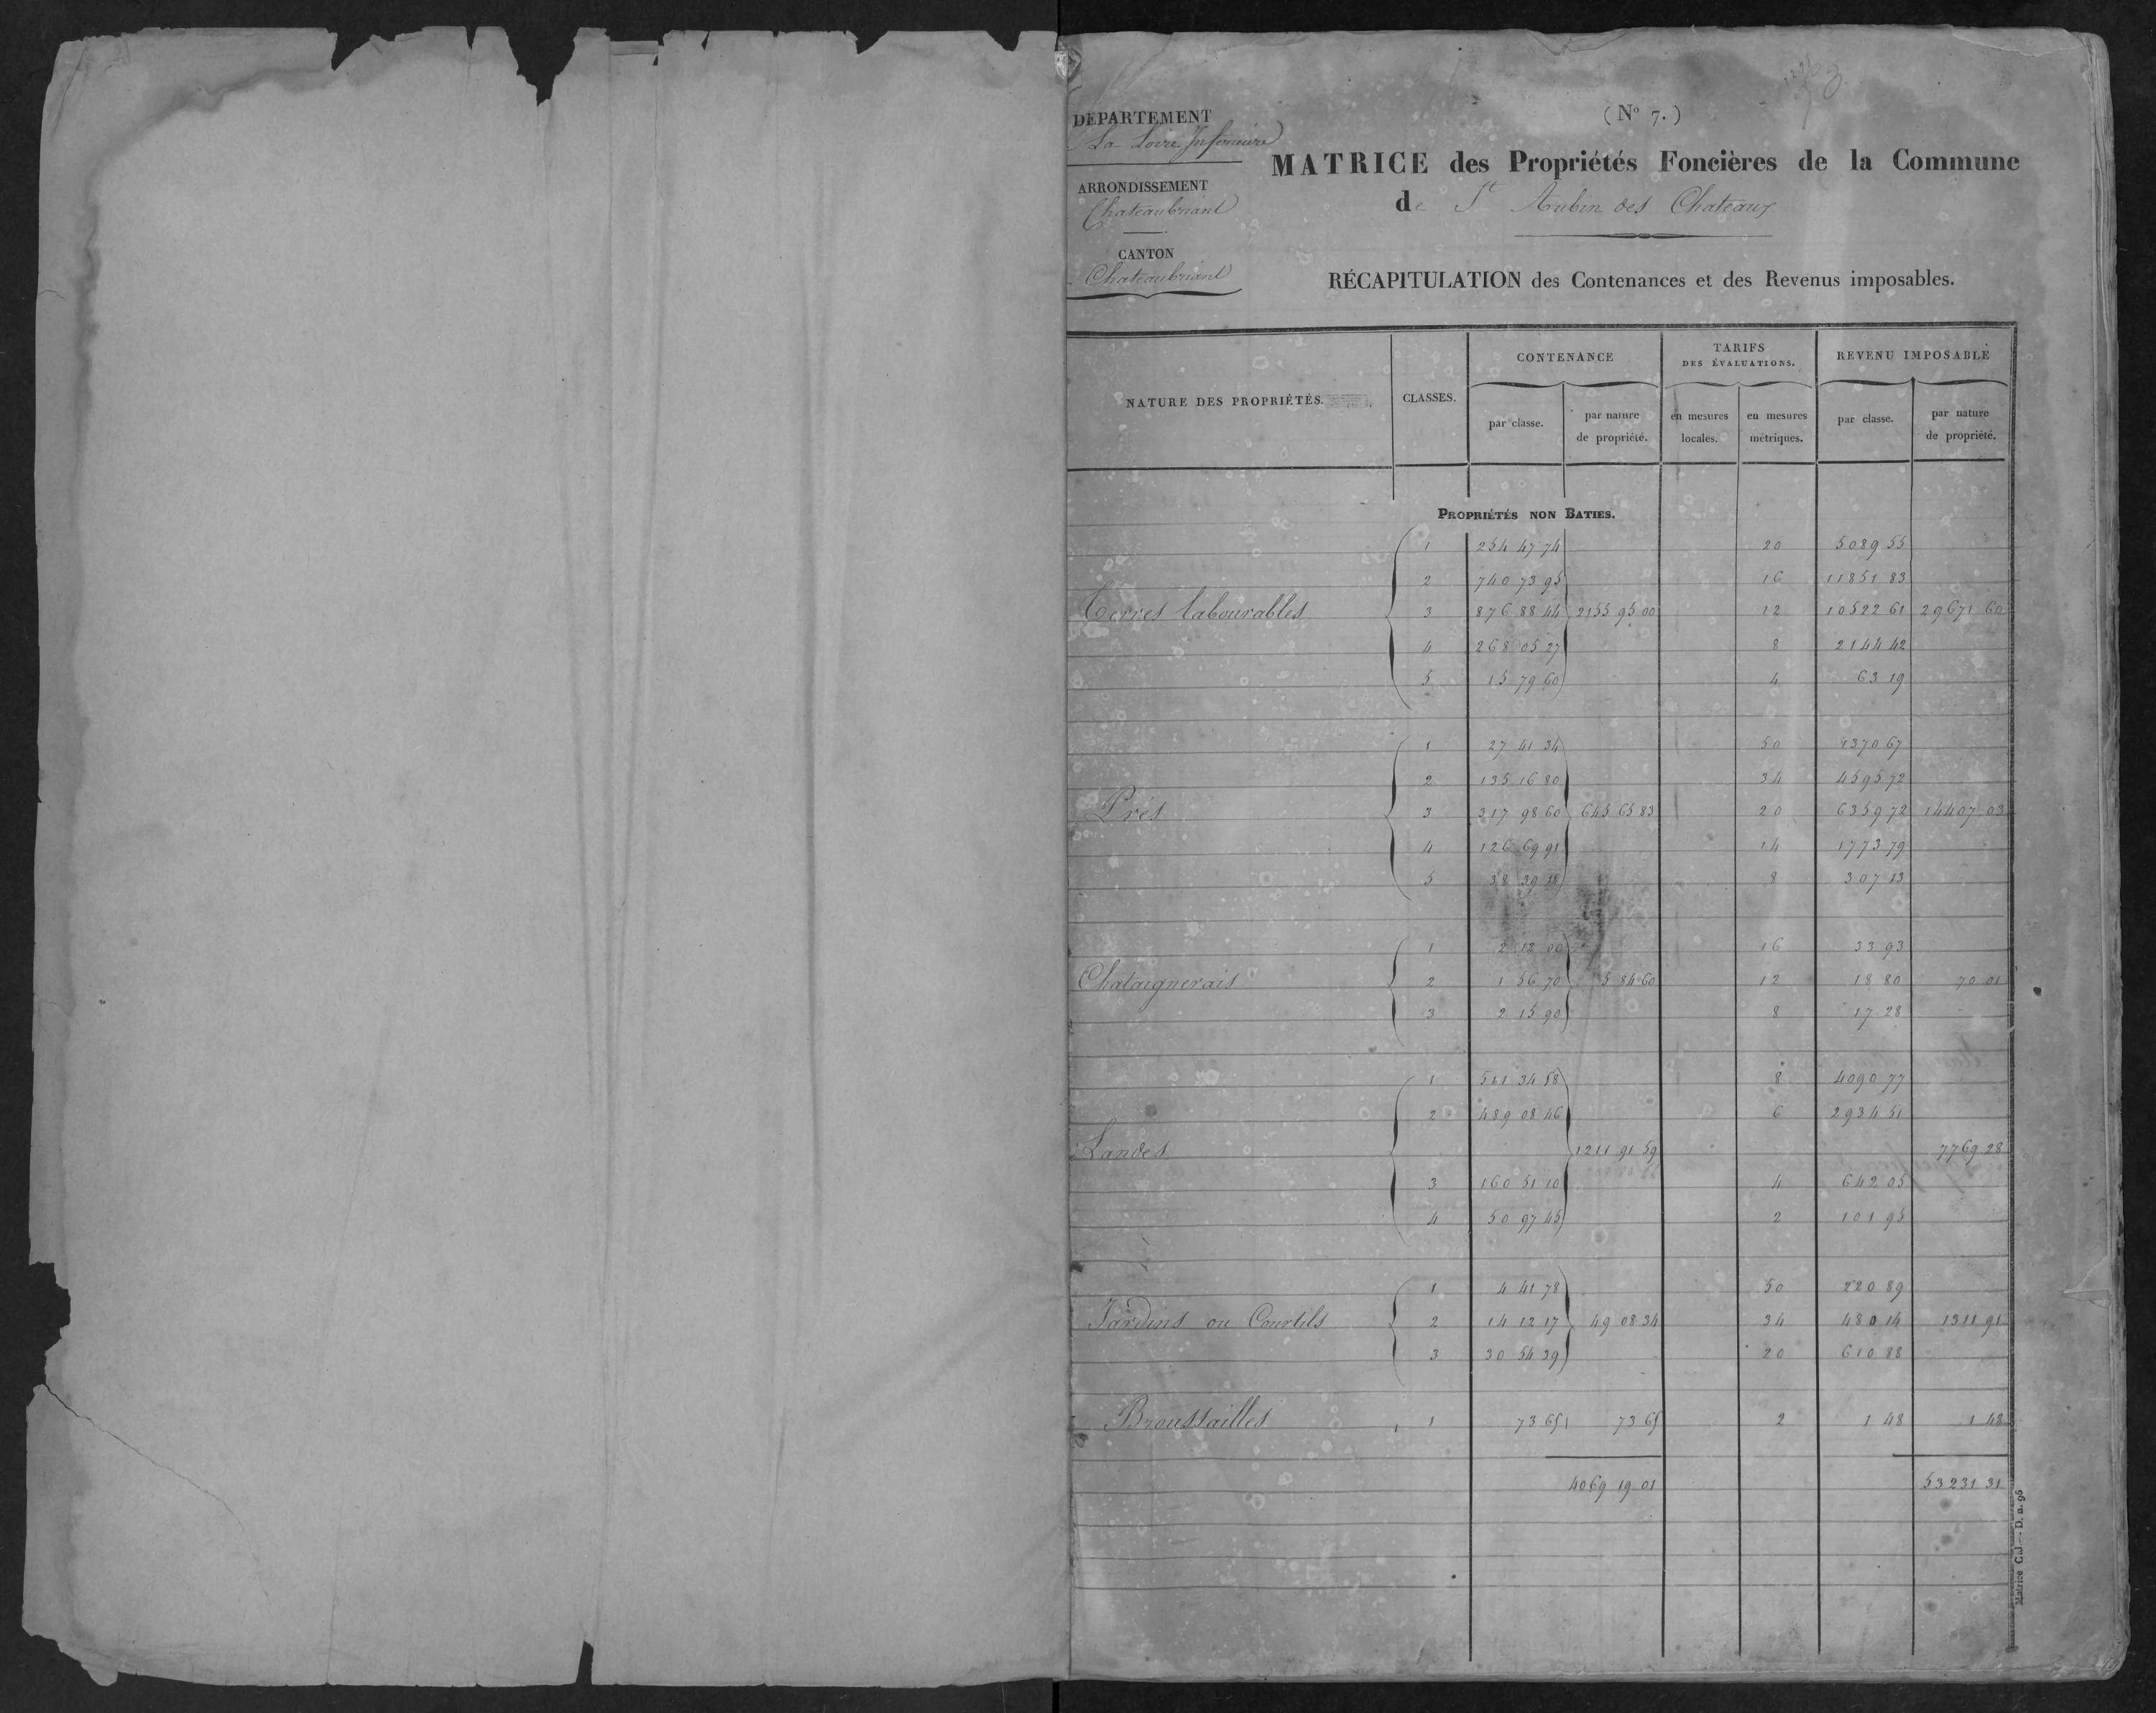 (N° 7.)
DÉPARTEMENT
La Loire Inférieure
ARRONDISSEMENT
Chateaubriant
CANTON
Chateaubriant
MATRICE des Propriétés Foncières de la Commune
de St Aubin des Chateaux
RÉCAPITULATION des Contenances et des Revenus imposables.
NATURE DES PROPRIÉTÉS. CLASSES. CONTENANCE TARIFS DES ÉVALUATIONS. REVENU IMPOSABLE
par classe. par nature de propriété. en mesures locales. en mesures métriques. par classe. par nature de propriété.
PROPRIÉTÉS NON BATIES.
1 254 47 74 20 5089 55
2 740 73 95 16 11851 83
Terres labourables 3 876 88 44 2155 95 00 12 10522 61 29671 60
4 268 05 27 8 2144 42
5 15 79 60 4 63 19
1 27 41 34 50 1370 67
2 135 16 80 34 4595 72
Prés 3 317 98 60 645 65 83 20 6359 72 14407 03
4 126 69 91 14 1773 79
5 38 39 18 8 307 13
1 2 12 00 16 33 93
Chataignerais 2 1 56 70 5 84 60 12 18 80 70 01
3 2 15 90 8 17 28
1 511 34 58 8 4090 77
2 489 08 46 6 2934 51
Landes 1211 91 59 7769 28
3 160 51 10 4 642 05
4 50 97 45 2 101 95
1 4 41 78 50 220 89
Jardins ou Courtils 2 14 12 17 49 08 34 34 480 14 1311 91
3 30 54 39 20 610 88
Broussailles 1 73 65 73 65 2 1 48 1 48
4069 19 01 53231 31
Matrice C.I — D. n. 96